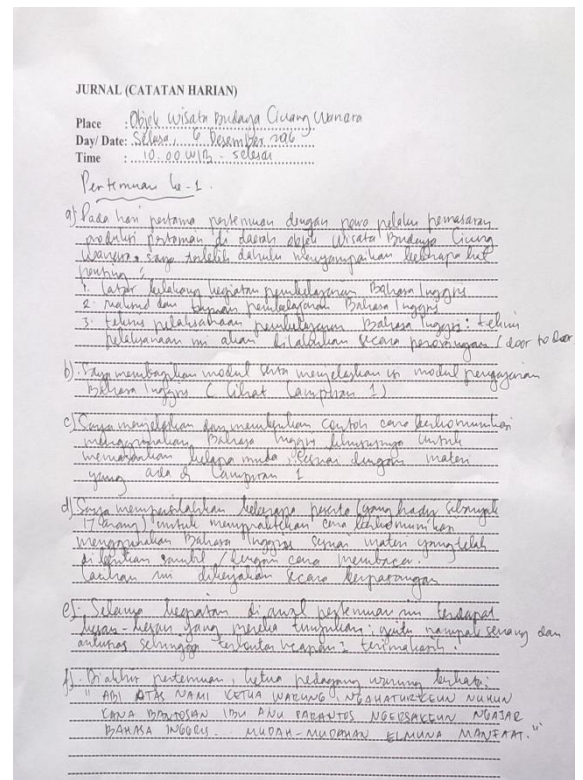 JURNAL (CATATAN HARIAN)
Place : Objek Wisata Budaya Ciung Wanara
Day/ Date: Selasa, 6 Desember 2016
Time : 10.00 WIB - selesai
Pertemuan ke-1.
a) Pada hari pertama pertemuan dengan para pelaku pemasaran
produksi pertanian di daerah objek wisata Budaya Ciung
Wanara, saya terlebih dahulu menyampaikan beberapa hal
penting :
1. latar belakang kegiatan pembelajaran Bahasa Inggris
2. maksud dan tujuan pembelajaran Bahasa Inggris
3. teknis pelaksanaan pembelajaran Bahasa Inggris : teknis
pelaksanaan ini akan dilakukan secara perorangan / door to door
b). Saya membagikan modul serta menjelaskan isi modul pengajaran
Bahasa Inggris ( Lihat Lampiran 1)
c) Saya menjelaskan dan memberikan contoh cara berkomunikasi
menggunakan Bahasa Inggris khususnya untuk
memasarkan kelapa muda, sesuai dengan materi
yang ada di Lampiran 1
d) Saya mempersilahkan beberapa peserta (yang hadir sebanyak
17 orang) untuk mempraktekan cara berkomunikasi
menggunakan Bahasa Inggris sesuai materi yang telah
diberikan sambil / dengan cara membaca.
Latihan ini dikerjakan secara berpasangan
e). Selama kegiatan di awal pertemuan ini terdapat
kesan-kesan yang mereka tunjukan; yaitu nampak senang dan
antusias sehingga terlontar ucapan : terimakasih.
f). Diakhir pertemuan, ketua pedagang warung berkata:
" ABI ATAS NAMI KETUA WARUNG NGAHATURKEUN NUHUN
KANA BANTOSAN IBU ANU PARANTOS NGERSAKEUN NGAJAR
BAHASA INGGRIS. MUDAH-MUDAHAN ELMUNA MANFAAT."